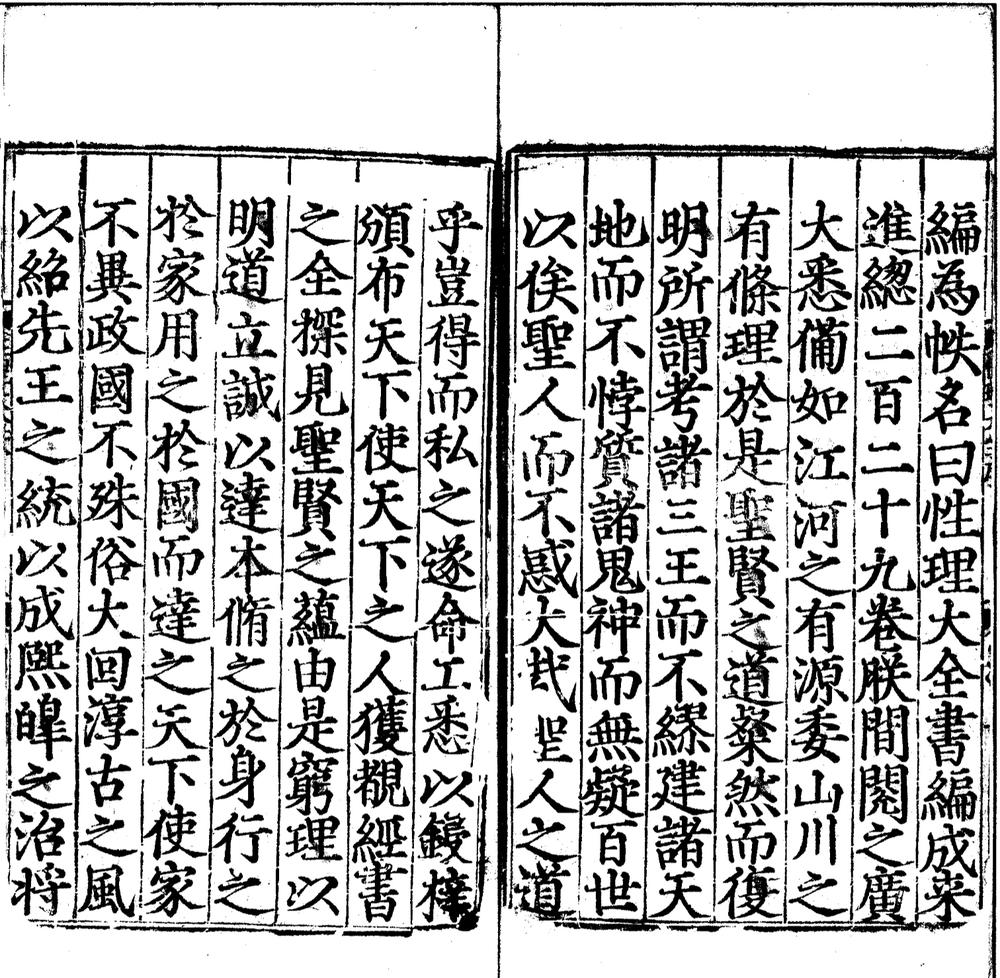 編為帙名曰性理大全書編成来
進緫二百二十九卷朕間閱之廣
大悉俻如江河之有源委山川之
有條理於是聖賢之道粲然而復
明所謂考諸三王而不繆建諸天
地而不悖質諸鬼神而無疑百世
以俟聖人而不惑大㦲聖人之道
乎豈得而私之遂命工悉以鋟梓
頒布天下使天下之人獲覩經書
之全探見聖賢之蘊由是窮理以
明道立誠以達本脩之於身行之
於家用之於國而達之天下使家
不異政國不殊俗大回淳古之風
以紹先王之統以成熈皥之治将